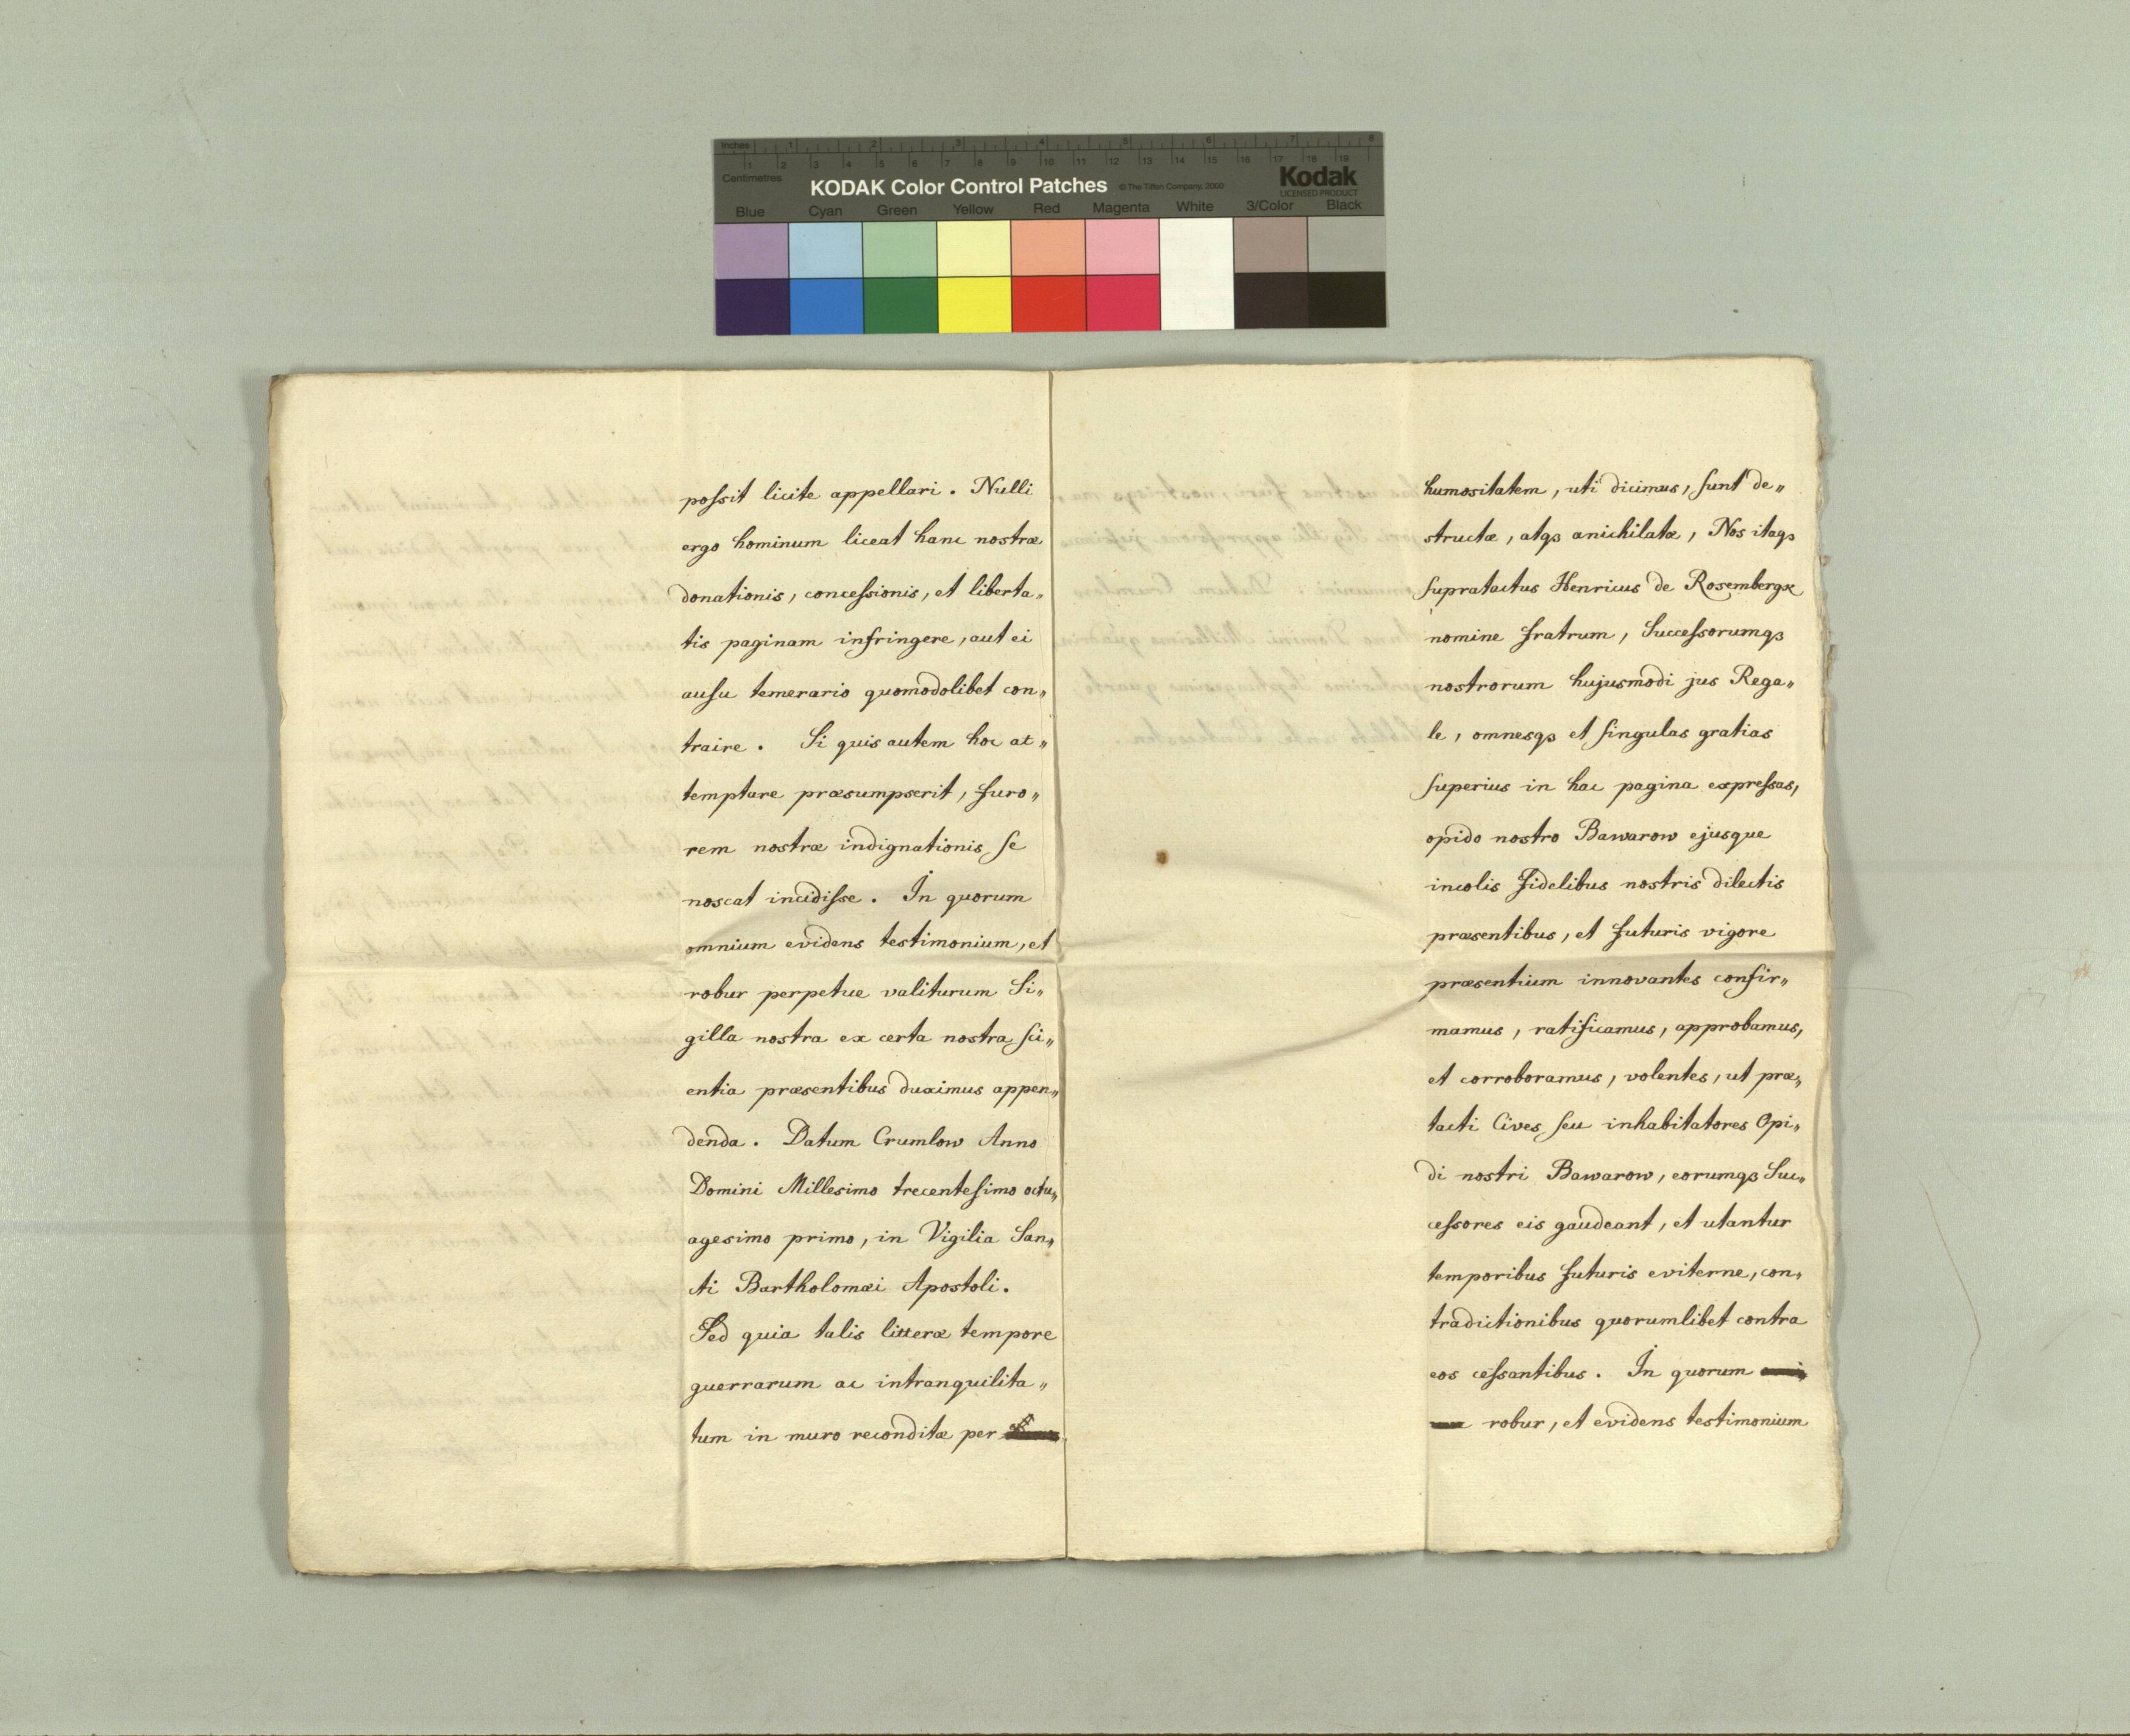 Inches 1 2 3 4 5 6 7 8
1 2 3 4 5 6 7 8 9 10 11 12 13 14 15 16 17 18 19
Centimetres
KODAK Color Control Patches © The Tiffen Company, 2000
Kodak
LICENSED PRODUCT
Blue Cyan Green Yellow Red Magenta White 3/Color Black
possit licite appellari. Nulli
ergo hominum liceat hanc nostræ
donationis, concessionis, et liberta„
tis paginam infringere, aut ei
ausu temerario quomodolibet con„
traire. Si quis autem hoc at„
temptare præsumpserit, furo„
rem nostræ indignationis se
noscat incidisse. In quorum
omnium evidens testimonium, et
robur perpetue valiturum Si„
gilla nostra ex certa nostra sci„
entia præsentibus duximus appen„
denda. Datum Crumlow Anno
Domini Millesimo trecentesimo octu„
agesimo primo, in Vigilia San„
ti Bartholomæi Apostoli.
Sed quia talis litteræ tempore
guerrarum ac intranquilita„
tum in muro reconditæ per
humositatem, uti dicimus, sunt de„
structæ, atqꝫ anichilatæ, Nos itaqꝫ
supratactus Henricus de Rosemberg
nomine fratrum, Successorumqꝫ
nostrorum hujusmodi jus Rega„
le, omnesqꝫ et singulas gratias
superius in hac pagina expressas,
opido nostro Bawarow ejusque
incolis fidelibus nostris dilectis
præsentibus, et futuris vigore
præsentium innovantes confir„
mamus, ratificamus, approbamus,
et corroboramus, volentes, ut præ„
tacti Cives seu inhabitatores Opi„
di nostri Bawarow, eorumqꝫ Suc„
cessores eis gaudeant, et utantur
temporibus futuris eviterne, con„
tradictionibus quorumlibet contra
eos cessantibus. In quorum
robur, et evidens testimonium